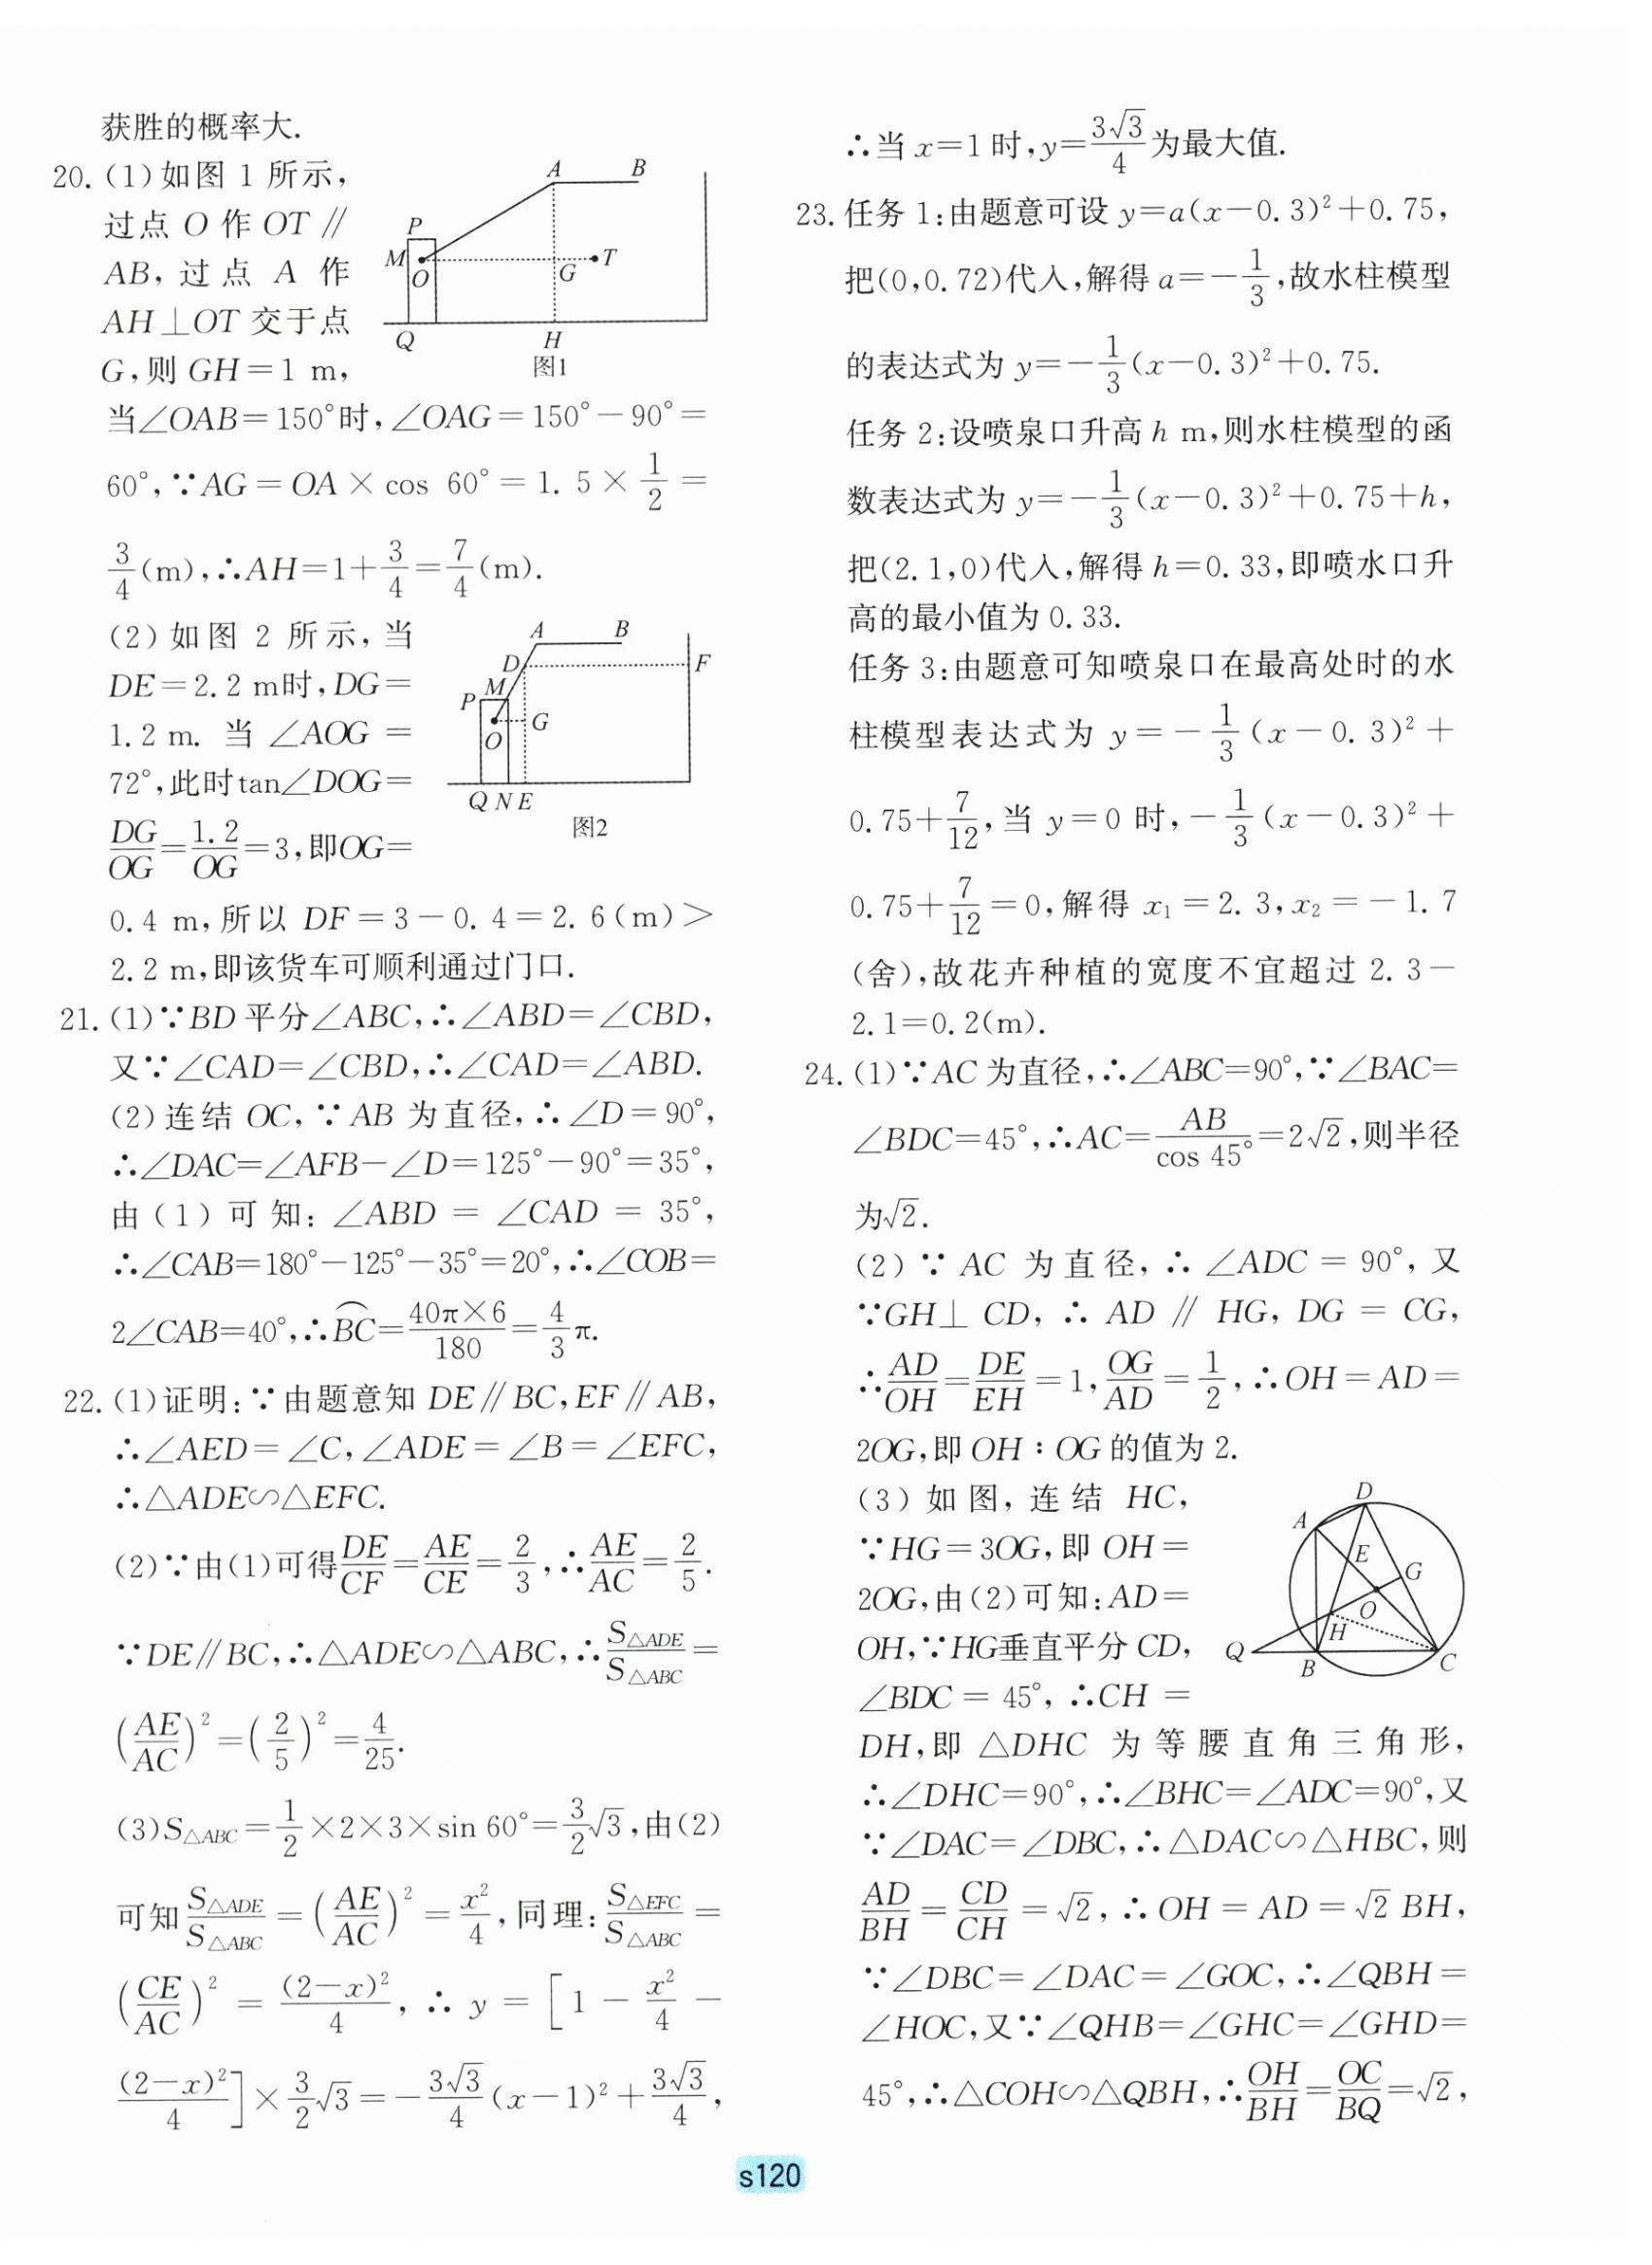 获胜的概率大.
20. (1)如图 1 所示,
过点 O 作 OT∥
AB, 过 点 A 作
AH⊥OT 交于点
G,则 GH=1 m,
A B P M O G T Q H
图1
当∠OAB=150°时,∠OAG=150°-90°=
60°,∵AG=OA×cos 60°=1.5×1/2=
3/4(m),∴AH=1+3/4=7/4(m).
(2)如图 2 所示,当
DE=2.2 m时,DG=
1.2 m. 当 ∠AOG=
72°,此时tan∠DOG=
DG/OG=1.2/OG=3,即OG=
A B D F M P G O Q N E
图2
0.4 m,所以 DF=3-0.4=2.6(m)>
2.2 m,即该货车可顺利通过门口.
21. (1)∵BD 平分∠ABC,∴∠ABD=∠CBD,
又∵∠CAD=∠CBD,∴∠CAD=∠ABD.
(2)连结 OC,∵AB 为直径,∴∠D=90°,
∴∠DAC=∠AFB-∠D=125°-90°=35°,
由(1)可知:∠ABD=∠CAD=35°,
∴∠CAB=180°-125°-35°=20°,∴∠COB=
2∠CAB=40°,∴⌒BC=40π×6/180=4/3π.
22. (1)证明:∵由题意知 DE∥BC,EF∥AB,
∴∠AED=∠C,∠ADE=∠B=∠EFC,
∴△ADE∽△EFC.
(2)∵由(1)可得DE/CF=AE/CE=2/3,∴AE/AC=2/5.
∵DE∥BC,∴△ADE∽△ABC,∴S△ADE/S△ABC=
(AE/AC)²=(2/5)²=4/25.
(3)S△ABC=1/2×2×3×sin 60°=3/2√3,由(2)
可知S△ADE/S△ABC=(AE/AC)²=x²/4,同理:S△EFC/S△ABC=
(CE/AC)²=(2-x)²/4,∴y=[1-x²/4-
(2-x)²/4]×3/2√3=-3√3/4(x-1)²+3√3/4,
∴当 x=1 时,y=3√3/4为最大值.
23. 任务 1:由题意可设 y=a(x-0.3)²+0.75,
把(0,0.72)代入,解得 a=-1/3,故水柱模型
的表达式为 y=-1/3(x-0.3)²+0.75.
任务 2:设喷泉口升高 h m,则水柱模型的函
数表达式为 y=-1/3(x-0.3)²+0.75+h,
把(2.1,0)代入,解得 h=0.33,即喷水口升
高的最小值为 0.33.
任务 3:由题意可知喷泉口在最高处时的水
柱模型表达式为 y=-1/3(x-0.3)²+
0.75+7/12,当 y=0 时,-1/3(x-0.3)²+
0.75+7/12=0,解得 x₁=2.3,x₂=-1.7
(舍),故花卉种植的宽度不宜超过 2.3-
2.1=0.2(m).
24. (1)∵AC 为直径,∴∠ABC=90°,∵∠BAC=
∠BDC=45°,∴AC=AB/cos 45°=2√2,则半径
为√2.
(2)∵AC 为直径,∴∠ADC=90°,又
∵GH⊥CD,∴AD∥HG,DG=CG,
∴AD/OH=DE/EH=1,OG/AD=1/2,∴OH=AD=
2OG,即 OH∶OG 的值为 2.
(3)如图,连结 HC,
∵HG=3OG,即 OH=
2OG,由(2)可知:AD=
OH,∵HG垂直平分 CD,
∠BDC=45°,∴CH=
D A E G O H Q B C
DH,即 △DHC 为等腰直角三角形,
∴∠DHC=90°,∴∠BHC=∠ADC=90°,又
∵∠DAC=∠DBC,∴△DAC∽△HBC,则
AD/BH=CD/CH=√2,∴OH=AD=√2 BH,
∵∠DBC=∠DAC=∠GOC,∴∠QBH=
∠HOC,又∵∠QHB=∠GHC=∠GHD=
45°,∴△COH∽△QBH,∴OH/BH=OC/BQ=√2,
s120